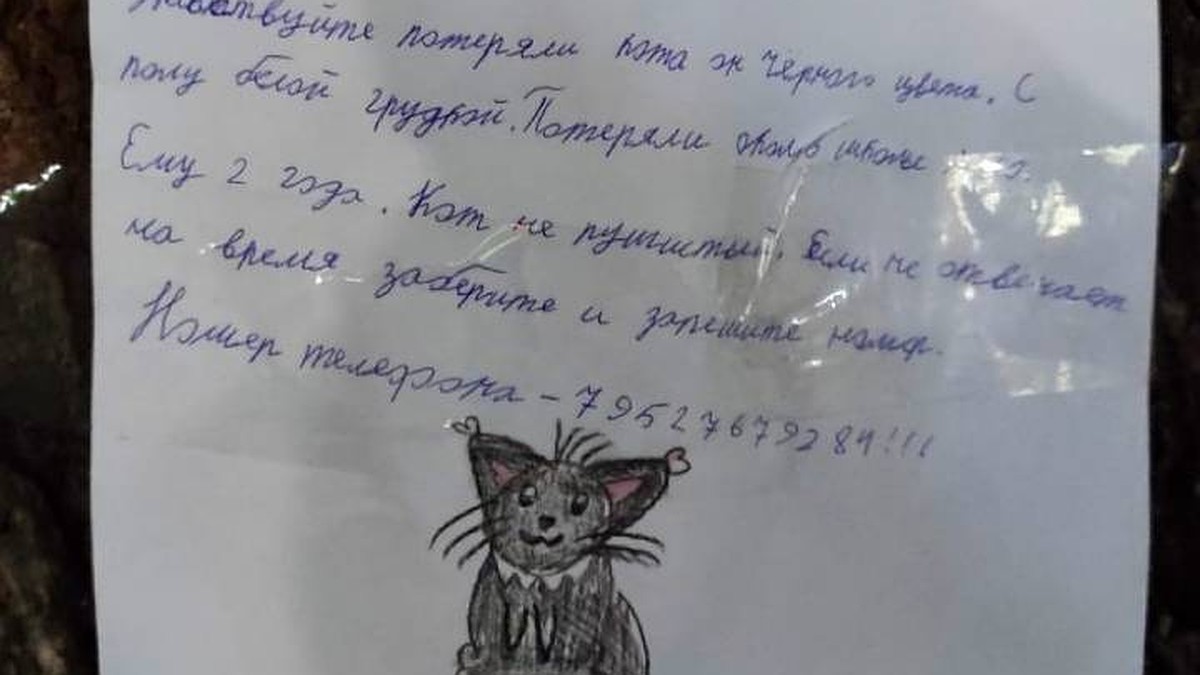 потеряли кота он чёрного цвета. С
полу белой грудкой. Потеряли около школы
Ему 2 года. Кот не пушистый. Если не отвечает
на время заберите и запешите номер.
Номер телефона - 79527679284!!!